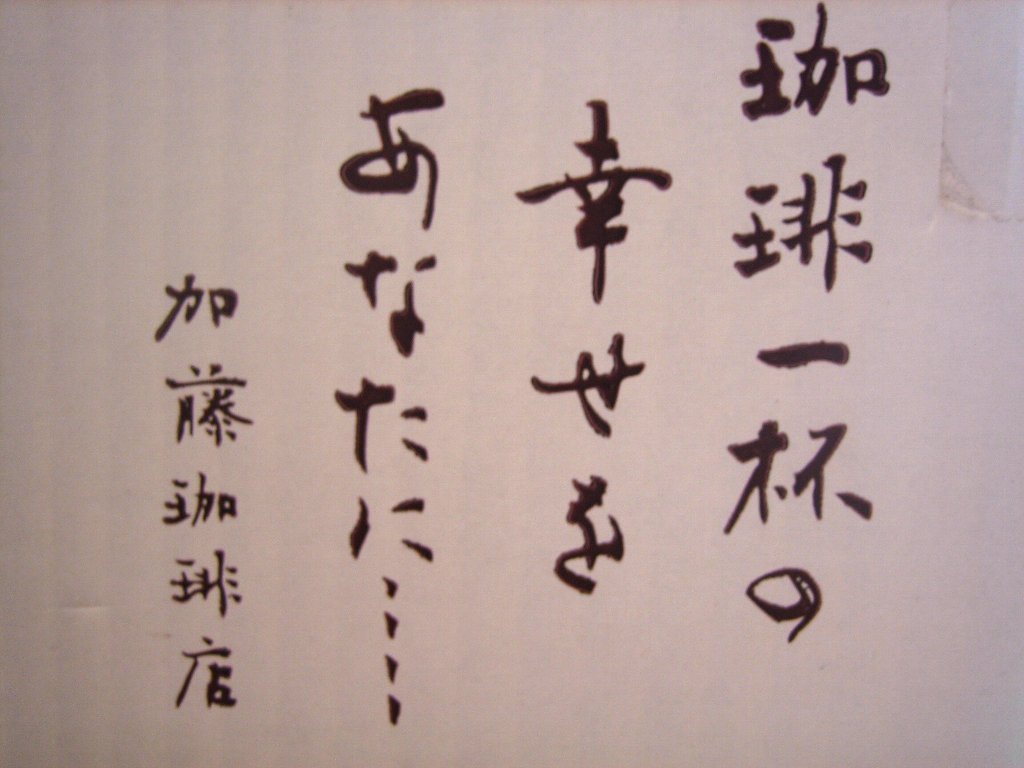 珈琲一杯の
幸せを
あなたに････
加藤珈琲店